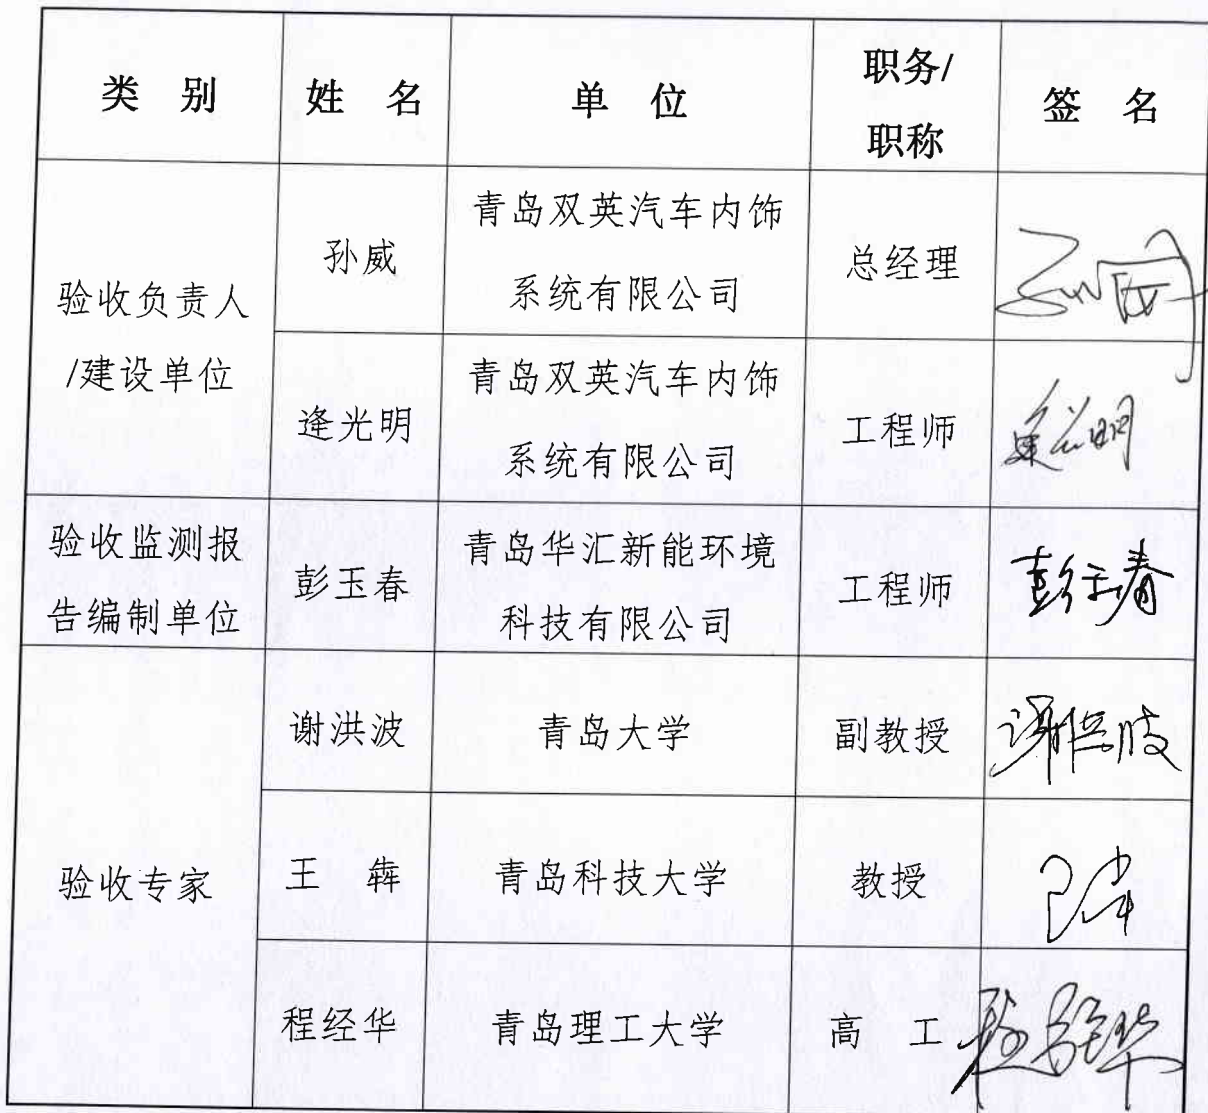 类 别 姓 名 单 位 职务/
职称 签 名
验收负责人
/建设单位
孙威
青岛双英汽车内饰
系统有限公司
总经理
孙威
逄光明
青岛双英汽车内饰
系统有限公司
工程师
逄光明
验收监测报
告编制单位
彭玉春
青岛华汇新能环境
科技有限公司
工程师
彭玉春
验收专家
谢洪波
青岛大学
副教授
谢洪波
王 犇
青岛科技大学
教授
程经华
青岛理工大学
高 工
程经华